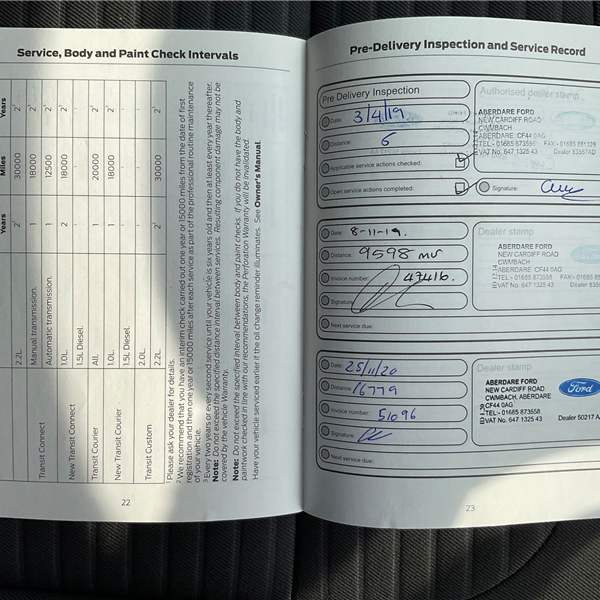 Service, Body and Paint Check Intervals
Years Miles Years
2.2L 2¹ 30000 2¹
Transit Connect Manual transmission. 1 18000 2¹
Automatic transmission. 1 12500 2¹
New Transit Connect 1.0L 2 18000 2¹
1.5L Diesel. - - -
Transit Courier All. 1 20000 2¹
New Transit Courier 1.0L 1 18000 2¹
1.5L Diesel. - - -
Transit Custom 2.0L - - -
2.2L 2¹ 30000 2¹
¹ Please ask your dealer for details.
² We recommend that you have an interim check carried out one year or 15000 miles from the date of first
registration and then one year or 15000 miles after each service as part of the professional routine maintenance
of your vehicle.
³ Every two years or every second service until your vehicle is six years old and then at least every year thereafter.
Note: Do not exceed the specified distance interval between services. Resulting component damage may not be
covered by the vehicle Warranty.
Note: Do not exceed the specified interval between body and paint checks. If you do not have the body and
paintwork checked in line with our recommendations, the Perforation Warranty will be invalidated.
Have your vehicle serviced earlier if the oil change reminder illuminates. See Owner's Manual.
22
Pre-Delivery Inspection and Service Record
Pre Delivery Inspection
Date: 3/4/19
Distance: 6
Applicable service actions checked:
Open service actions completed:
Authorised dealer stamp
ABERDARE FORD
NEW CARDIFF ROAD
CWMBACH
ABERDARE, CF44 0AG
TEL - 01685 873558
VAT No. 647 1325 43
Signature:
Date: 8-11-19.
Distance: 9598
Invoice number: 47416.
Signature:
Next service due:
Dealer stamp
ABERDARE FORD
NEW CARDIFF ROAD
CWMBACH
ABERDARE CF44 0AG
TEL - 01685 873558
VAT No. 647 1325 43
Date: 25/11/20
Distance: 16779
Invoice number: 51096
Signature:
Next service due:
Dealer stamp
ABERDARE FORD
NEW CARDIFF ROAD
CWMBACH, ABERDARE
CF44 0AG
TEL - 01685 873558
VAT No. 647 1325 43
Ford
Dealer 50217
23